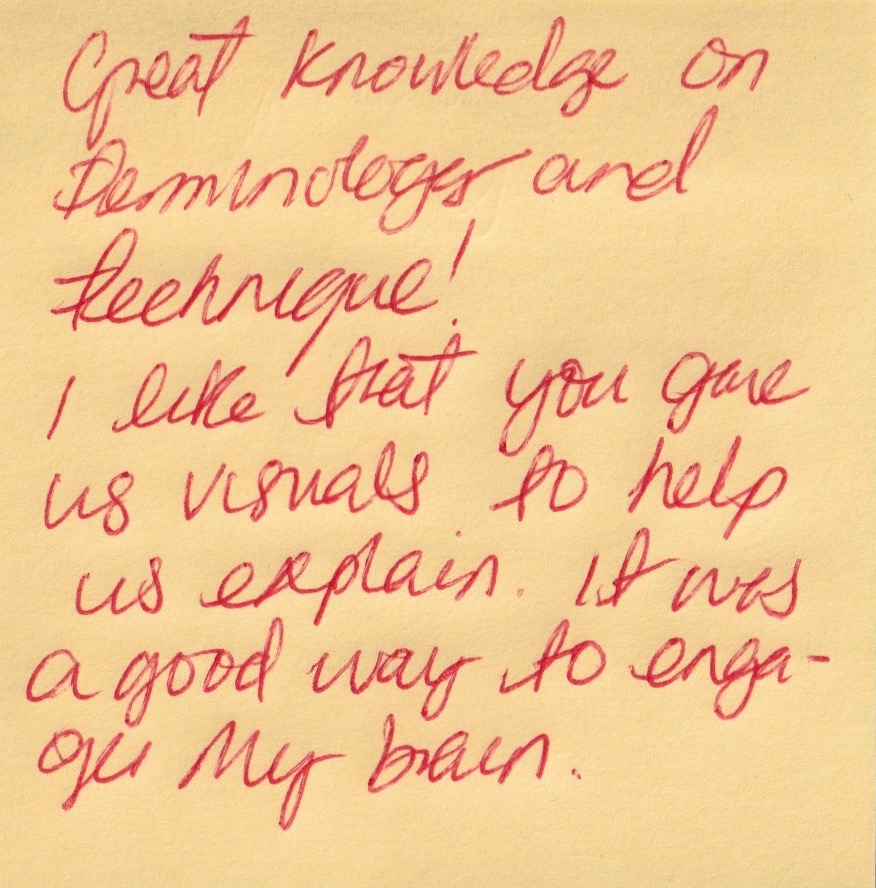 Great Knowledge on
Terminology and
technique!
I like that you gave
us visuals to help
us explain. It was
a good way to enga-
ge my brain.